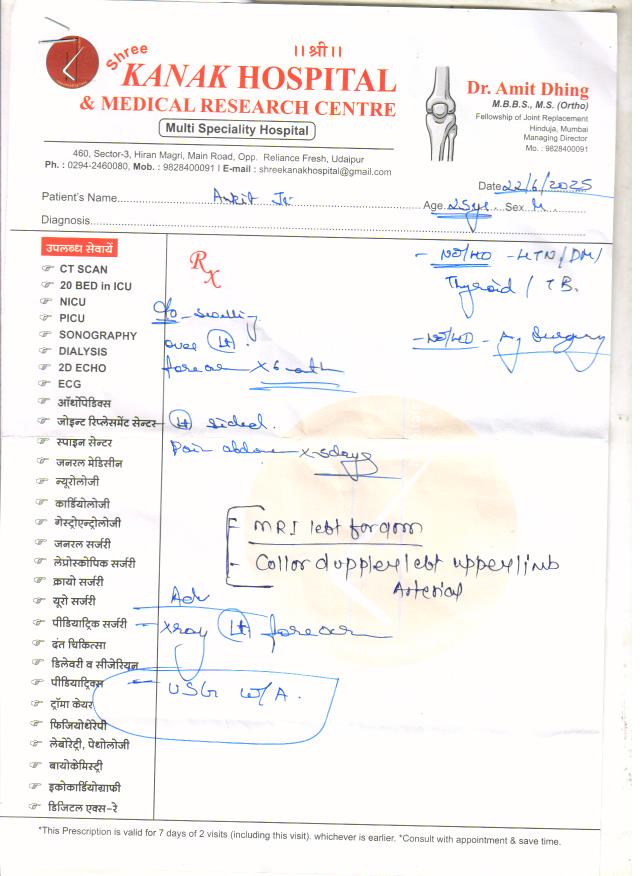 ॥ श्री ॥
Shree
KANAK HOSPITAL
& MEDICAL RESEARCH CENTRE
Multi Speciality Hospital
460, Sector-3, Hiran Magri, Main Road, Opp. Reliance Fresh, Udaipur
Ph. : 0294-2460080, Mob. : 9828400091 I E-mail : shreekanakhospital@gmail.com
Dr. Amit Dhing
M.B.B.S., M.S. (Ortho)
Fellowship of Joint Replacement
Hinduja, Mumbai
Managing Director
Mo. : 9828400091
Date 22/6/2025
Patient's Name Ankit Age Sex M
Diagnosis
उपलब्ध सेवायें
CT SCAN
20 BED in ICU
NICU
PICU
SONOGRAPHY
DIALYSIS
2D ECHO
ECG
ऑर्थोपेडिक्स
जोइन्ट रिप्लेसमेंट सेन्टर
स्पाइन सेन्टर
जनरल मेडिसीन
न्यूरोलोजी
कार्डियोलोजी
गेस्ट्रोएन्ट्रोलोजी
जनरल सर्जरी
लेप्रोस्कोपिक सर्जरी
क्रायो सर्जरी
यूरो सर्जरी
पीडियाट्रिक सर्जरी
दंत चिकित्सा
डिलेवरी व सीजेरियन
पीडियाट्रिक्स
ट्रॉमा केयर
फिजियोथेरेपी
लेबोरेट्री, पेथोलोजी
बायोकेमिस्ट्री
इकोकार्डियोग्राफी
डिजिटल एक्स-रे
Rx
- NO/HO - HTN/DM/
Thyroid / TB.
- NO/HO - Any Surgery
c/o - swelling
over Lt.
forearm x 6 month
Lt sided
Pain abdomen x 5days
- MRI lebt forqom
- Collor duppler lebt upper limb
Arterial
Adv
- xray Lt forearm
- USG W/A.
*This Prescription is valid for 7 days of 2 visits (including this visit). whichever is earlier. *Consult with appointment & save time.